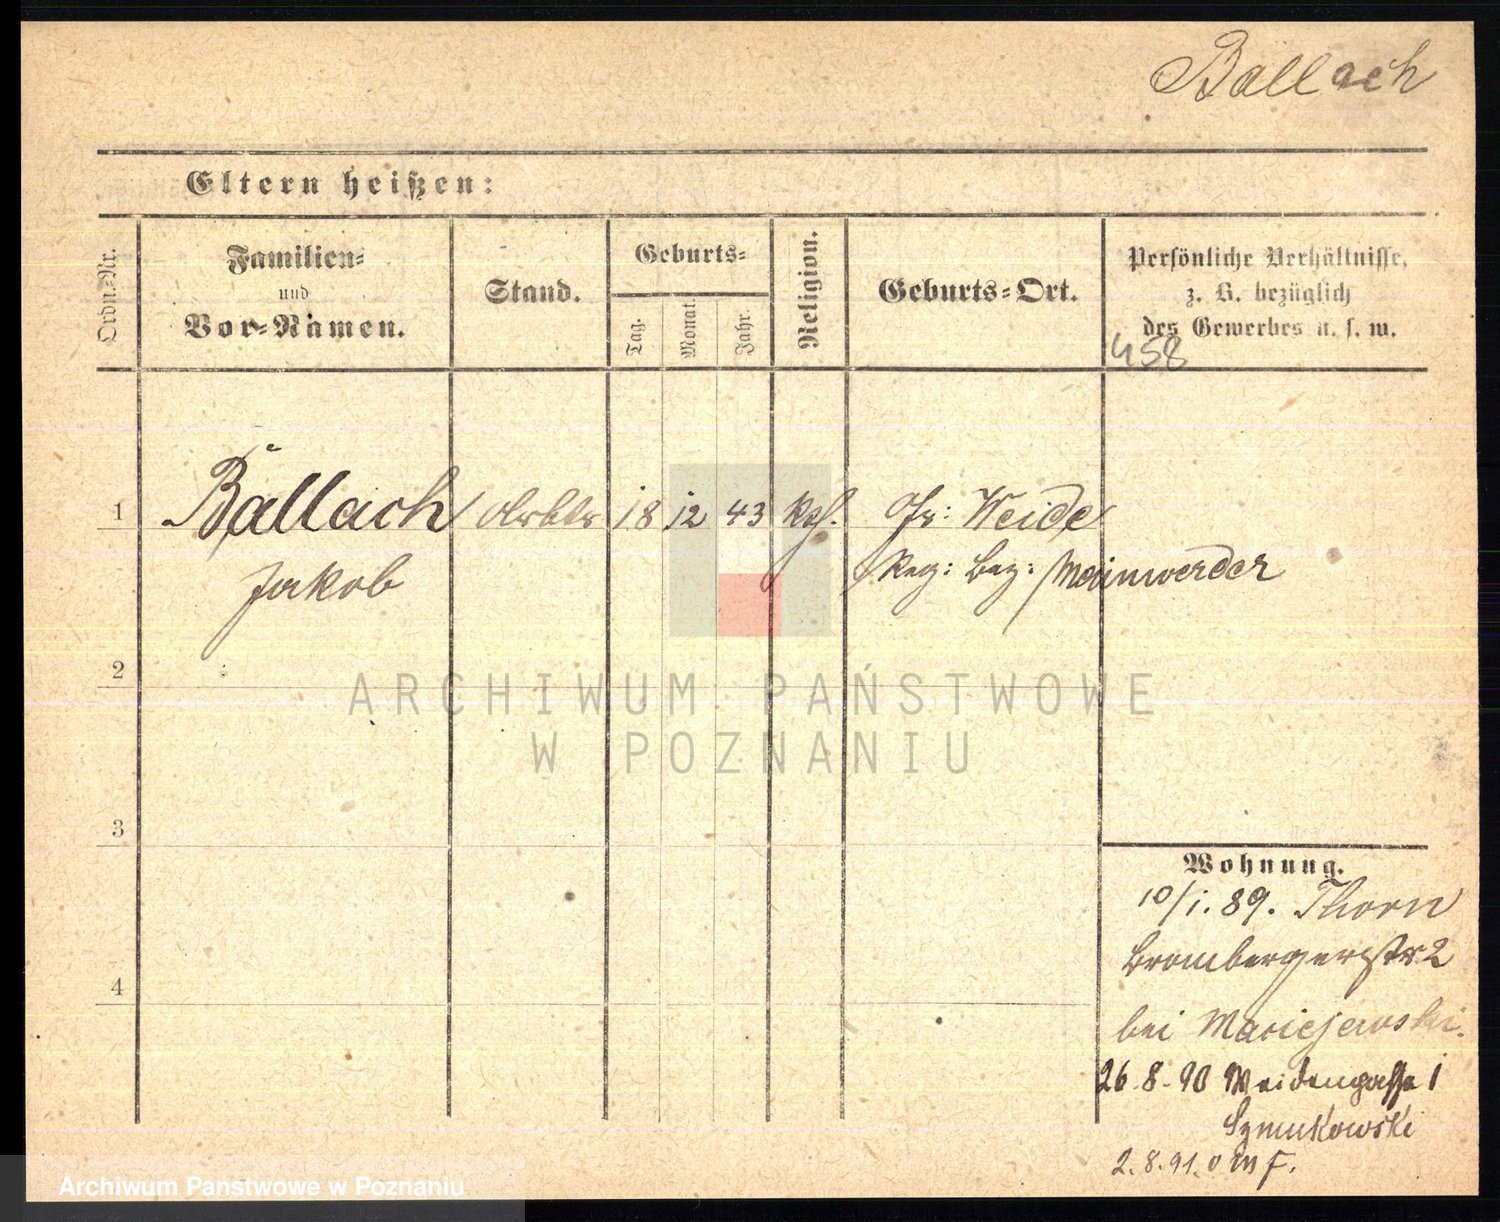 Ballach
Eltern heißen:
Ordn.-Nr.
Familien-
und
Vor-Namen.
Stand.
Geburts-
Tag.
Monat.
Jahr.
Religion.
Geburts-Ort.
Persönliche Verhältnisse,
z. B. bezüglich
des Gewerbes u. s. w.
458
1 Ballach Arbtr 18 12 43 kath. Gr: Weide
Jakob Reg: Bez: Marinwerder
2
3
4
ARCHIWUM PAŃSTWOWE
W POZNANIU
Wohnung.
10/1. 89. Thorn
Brombergerstr. 2
bei Maciejewski.
26.8.90 Weidengasse 1
Szmukowski
2.8.91.
Archiwum Państwowe w Poznaniu